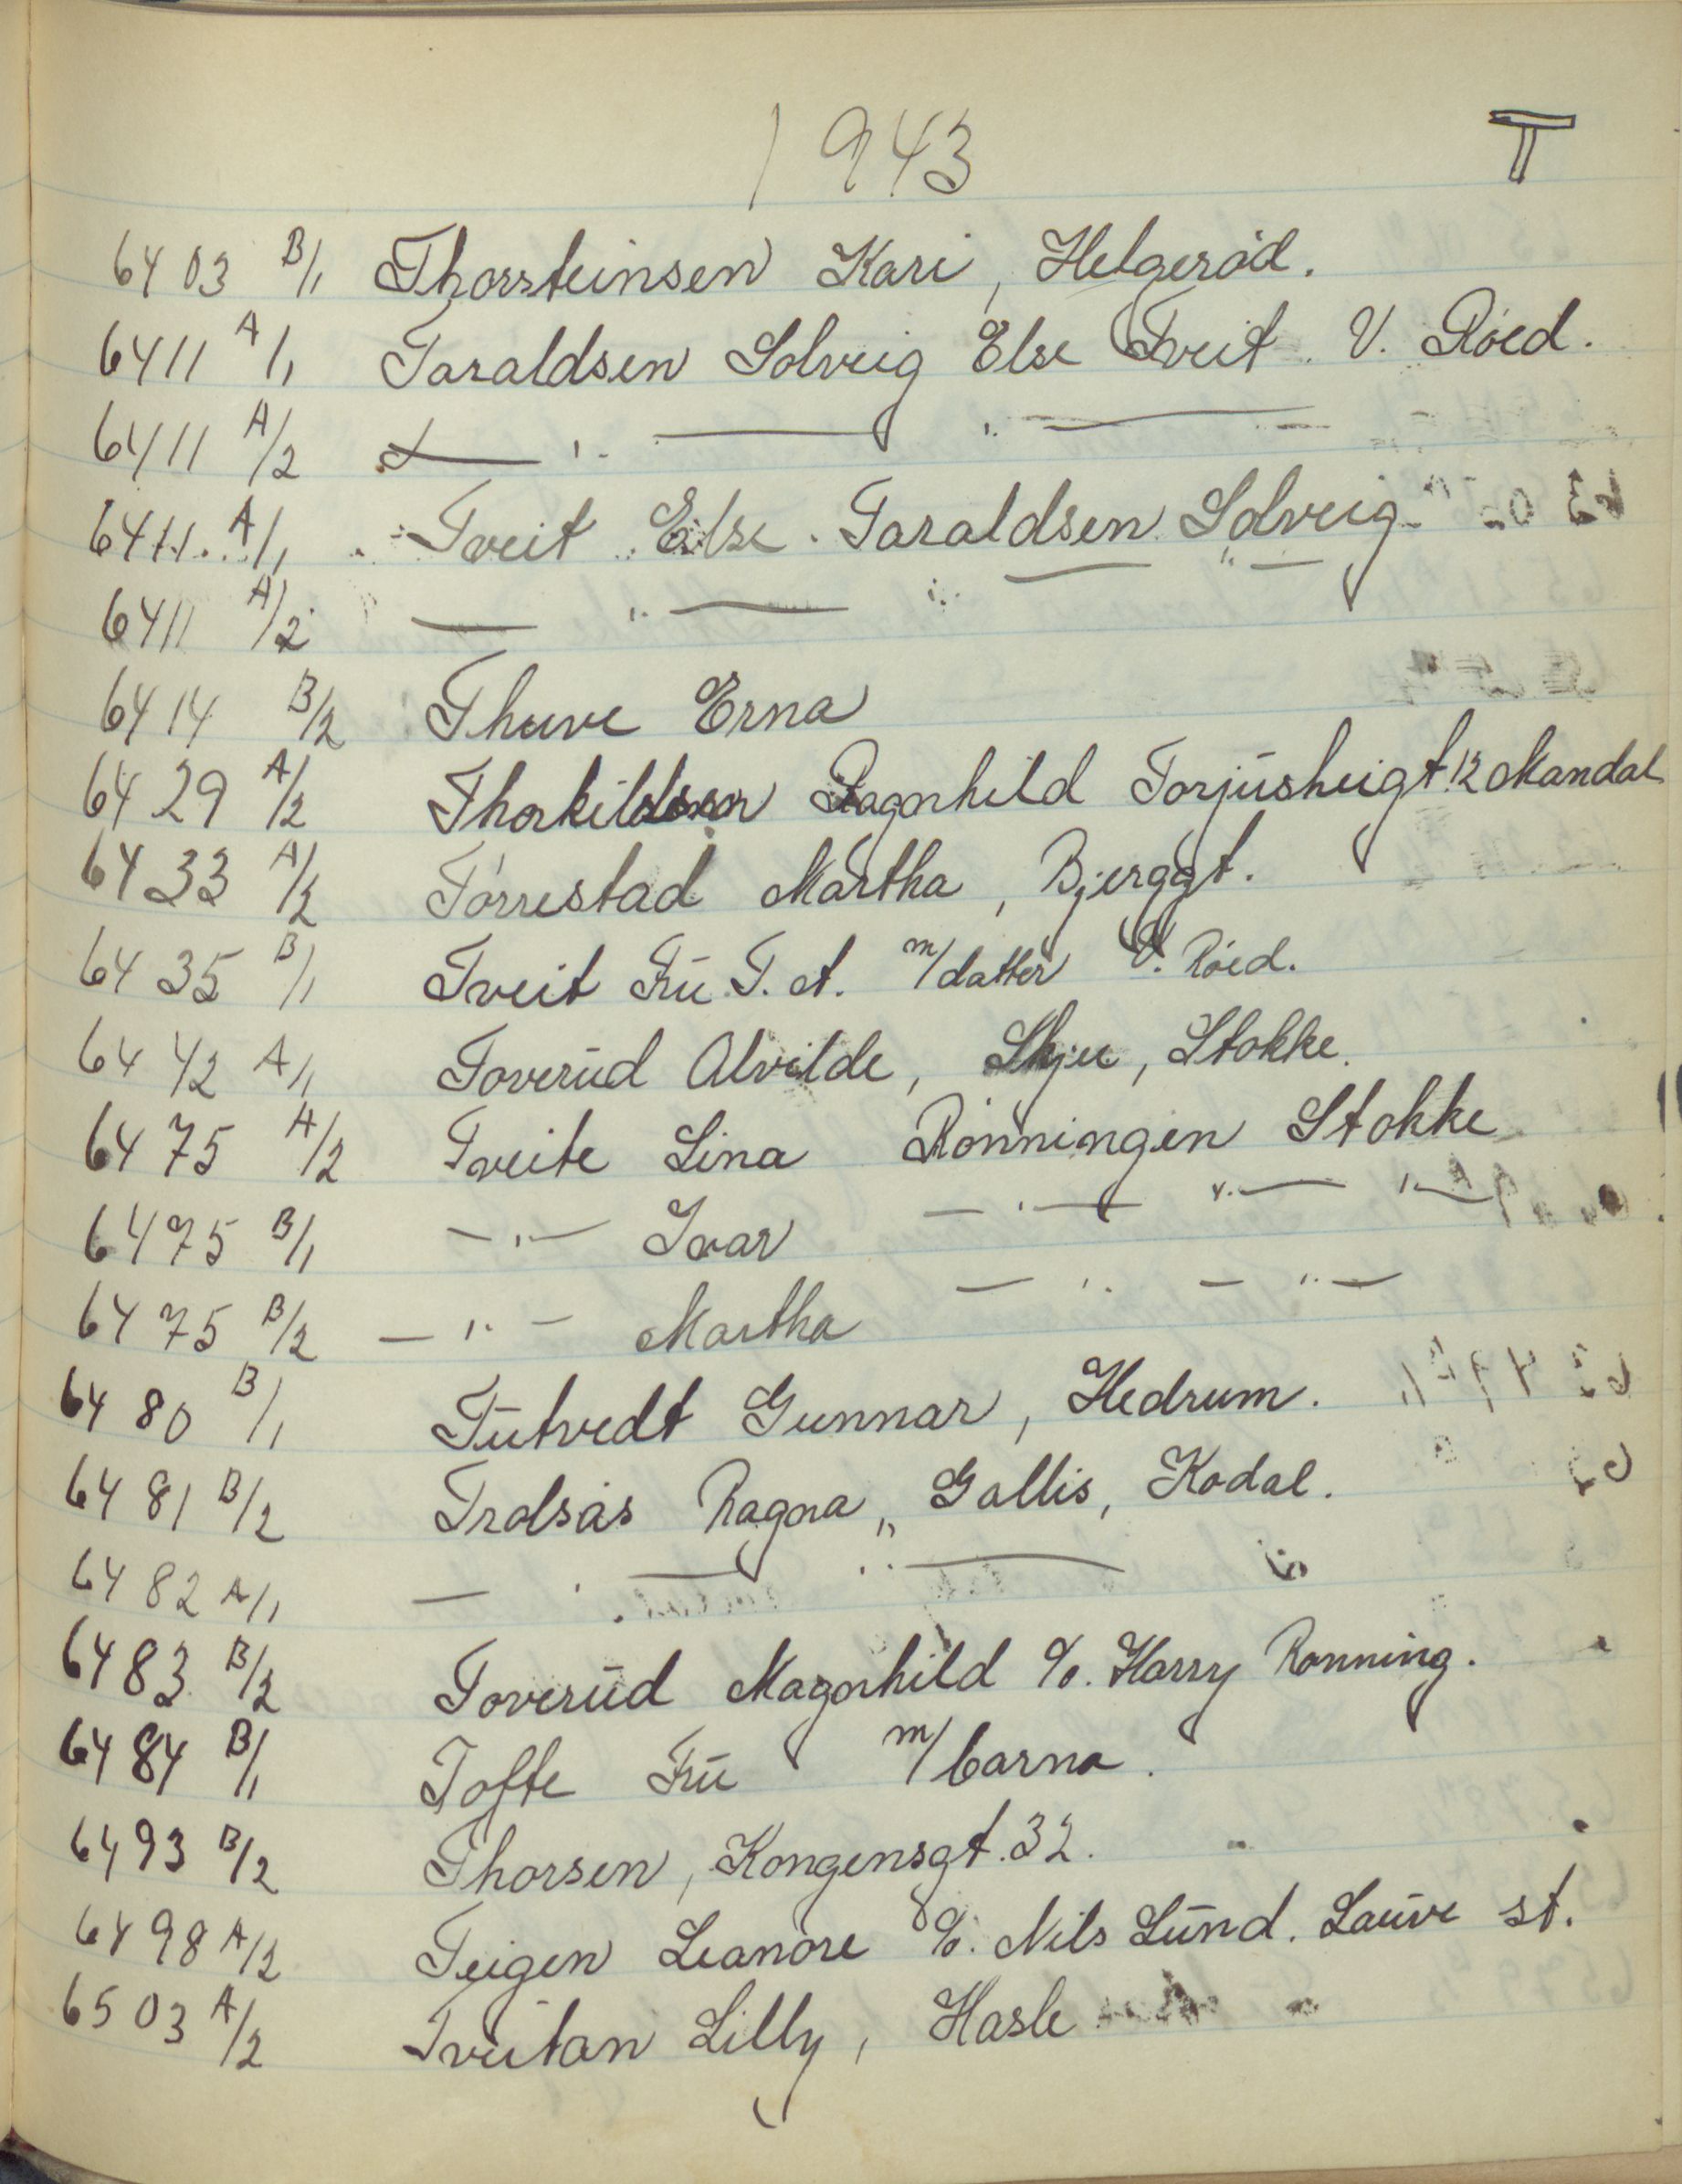 1943
T
6403 B/1 Thorsteinsen Kari, Helgeröd.
6411 A/1 Taraldsen Solveig Else Tveit V. Röed.
6411 A/2 — " — " —
6411 A/1 Tveit Else. Taraldsen Solveig
6411 A/2 — " — " — " —
6414 B/2 Thuve Erna
6429 A/2 Thorkildsen Ragnhild Torjusheigt. 12 Mandal
6433 A/2 Törrestad Martha, Bjerggt.
6435 B/1 Tveit Frū T. A. m/datter V. Röed.
6442 A/1 Toverūd Alvilde, Skjee, Stokke.
6475 A/2 Tveite Lina Rönningen Stokke
6475 B/1 — " — Ivar — " — " — " —
6475 B/2 — " — Martha — " — " —
6480 B/1 Tūtvedt Gunnar, Hedrum.
6481 B/2 Trolsås Ragna, Gallis, Kodal.
6482 A/1 — " — " —
6483 B/2 Toverūd Magnhild c/o. Harry Rönning.
6484 B/1 Tofte Frū m/barna.
6493 B/2 Thorsen, Kongensgt. 32.
6498 A/2 Teigen Leanore c/o. Nils Lūnd. Laūve st.
6503 A/2 Tveitan Lilly, Hasle